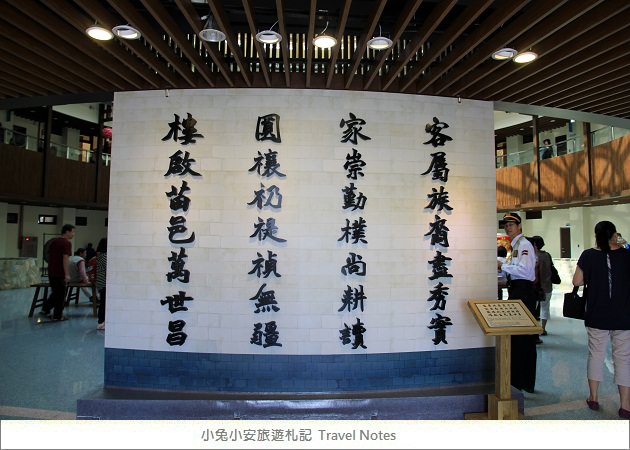 客屬族裔盡秀實
家崇勤樸尚耕讀
圓禳礽禔禎無疆
樓啟苗邑萬世昌
小兔小安旅遊札記 Travel Notes